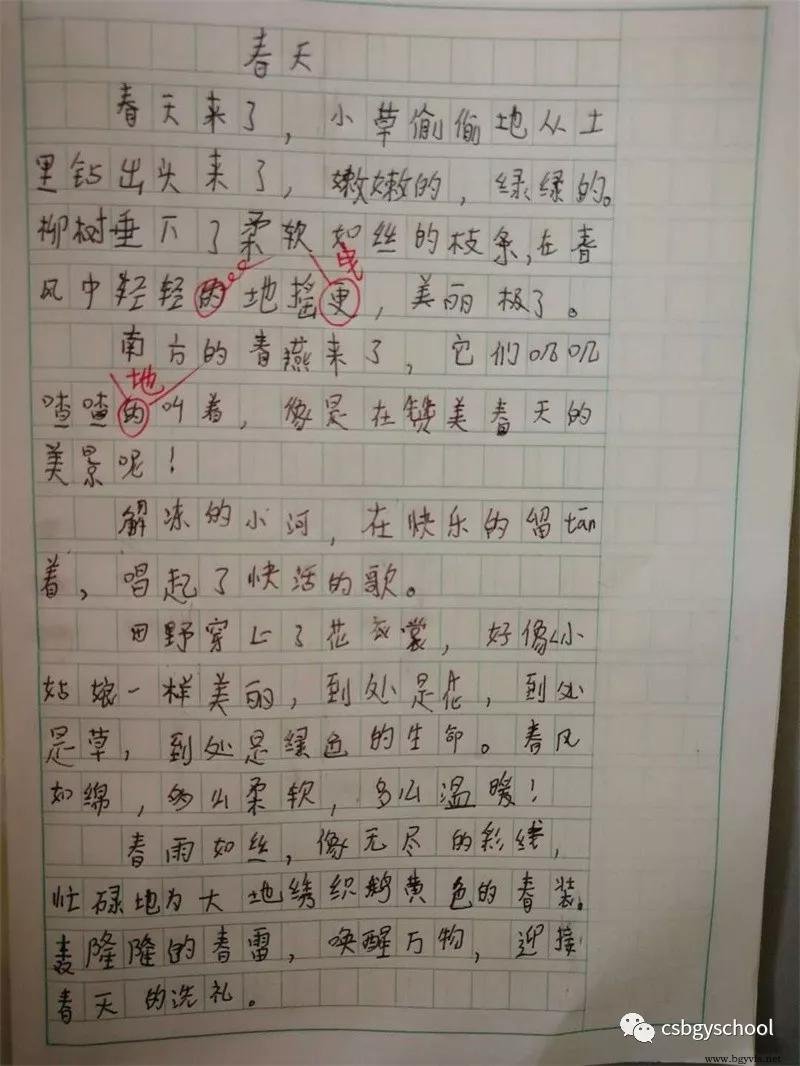 春天
春天来了，小草偷偷地从土
里钻出头来了，嫩嫩的，绿绿的。
柳树垂下了柔软如丝的枝条，在春
曳
风中轻轻的地摇更，美丽极了。
南方的春燕来了，它们叽叽
地
喳喳的叫着，像是在赞美春天的
美景呢！
解冻的小河，在快乐的留tān
着，唱起了快活的歌。
田野穿上了花衣裳，好像小
姑娘一样美丽，到处是花，到处
是草，到处是绿色的生命。春风
如绵，多么柔软，多么温暖！
春雨如丝，像无尽的彩线，
忙碌地为大地绣织鹅黄色的春装。
轰隆隆的春雷，唤醒万物，迎接
春天的洗礼。
csbgyschool
www.bgyvfs.net